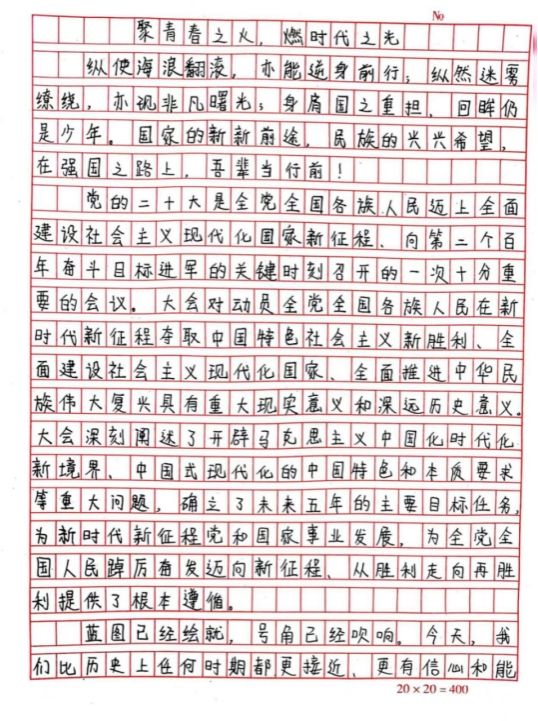 No
聚青春之火，燃时代之光
纵使海浪翻滚，亦能逆身前行；纵然迷雾
缭绕，亦视非凡曙光；身肩国之重担，回眸仍
是少年。国家的新新前途，民族的兴兴希望，
在强国之路上，吾辈当行前！
党的二十大是全党全国各族人民迈上全面
建设社会主义现代化国家新征程、向第二个百
年奋斗目标进军的关键时刻召开的一次十分重
要的会议。大会对动员全党全国各族人民在新
时代新征程夺取中国特色社会主义新胜利、全
面建设社会主义现代化国家、全面推进中华民
族伟大复兴具有重大现实意义和深远历史意义。
大会深刻阐述了开辟马克思主义中国化时代化
新境界、中国式现代化的中国特色和本质要求
等重大问题，确立了未来五年的主要目标任务，
为新时代新征程党和国家事业发展，为全党全
国人民踔厉奋发迈向新征程、从胜利走向再胜
利提供了根本遵循。
蓝图已经绘就，号角已经吹响。今天，我
们比历史上任何时期都更接近、更有信心和能
20×20=400